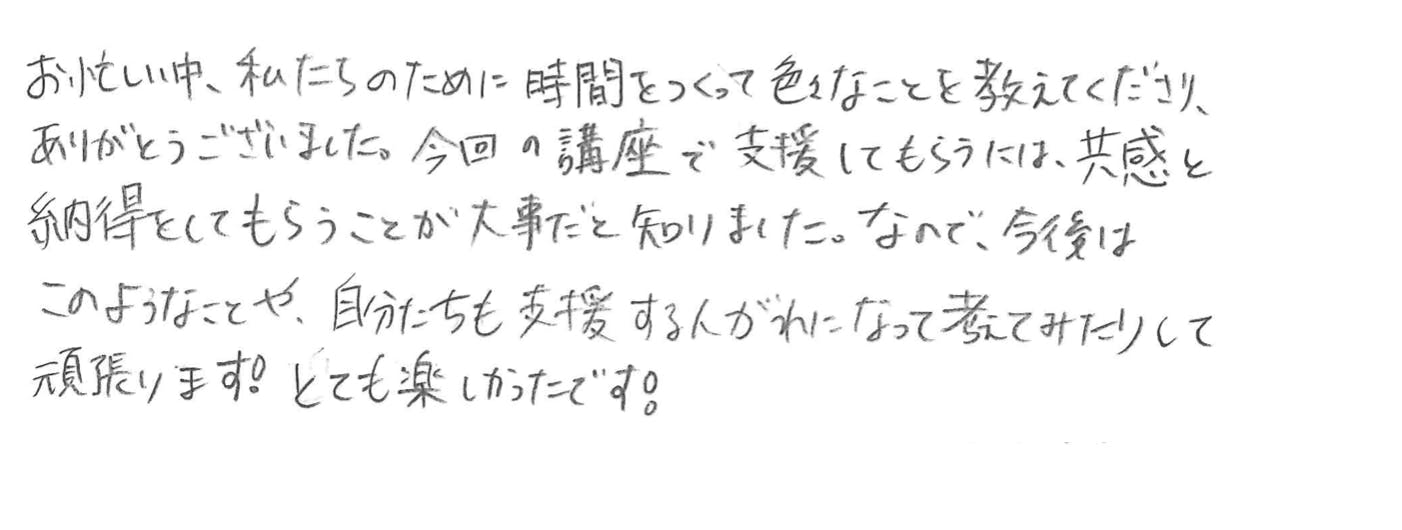 お忙しい中、私たちのために時間をつくって色々なことを教えてくださり、
ありがとうございました。今回の講座で支援してもらうには、共感と
納得をしてもらうことが大事だと知りました。なので、今後は
このようなことや、自分たちも支援する人がれになって考えてみたりして
頑張ります!とても楽しかったです!